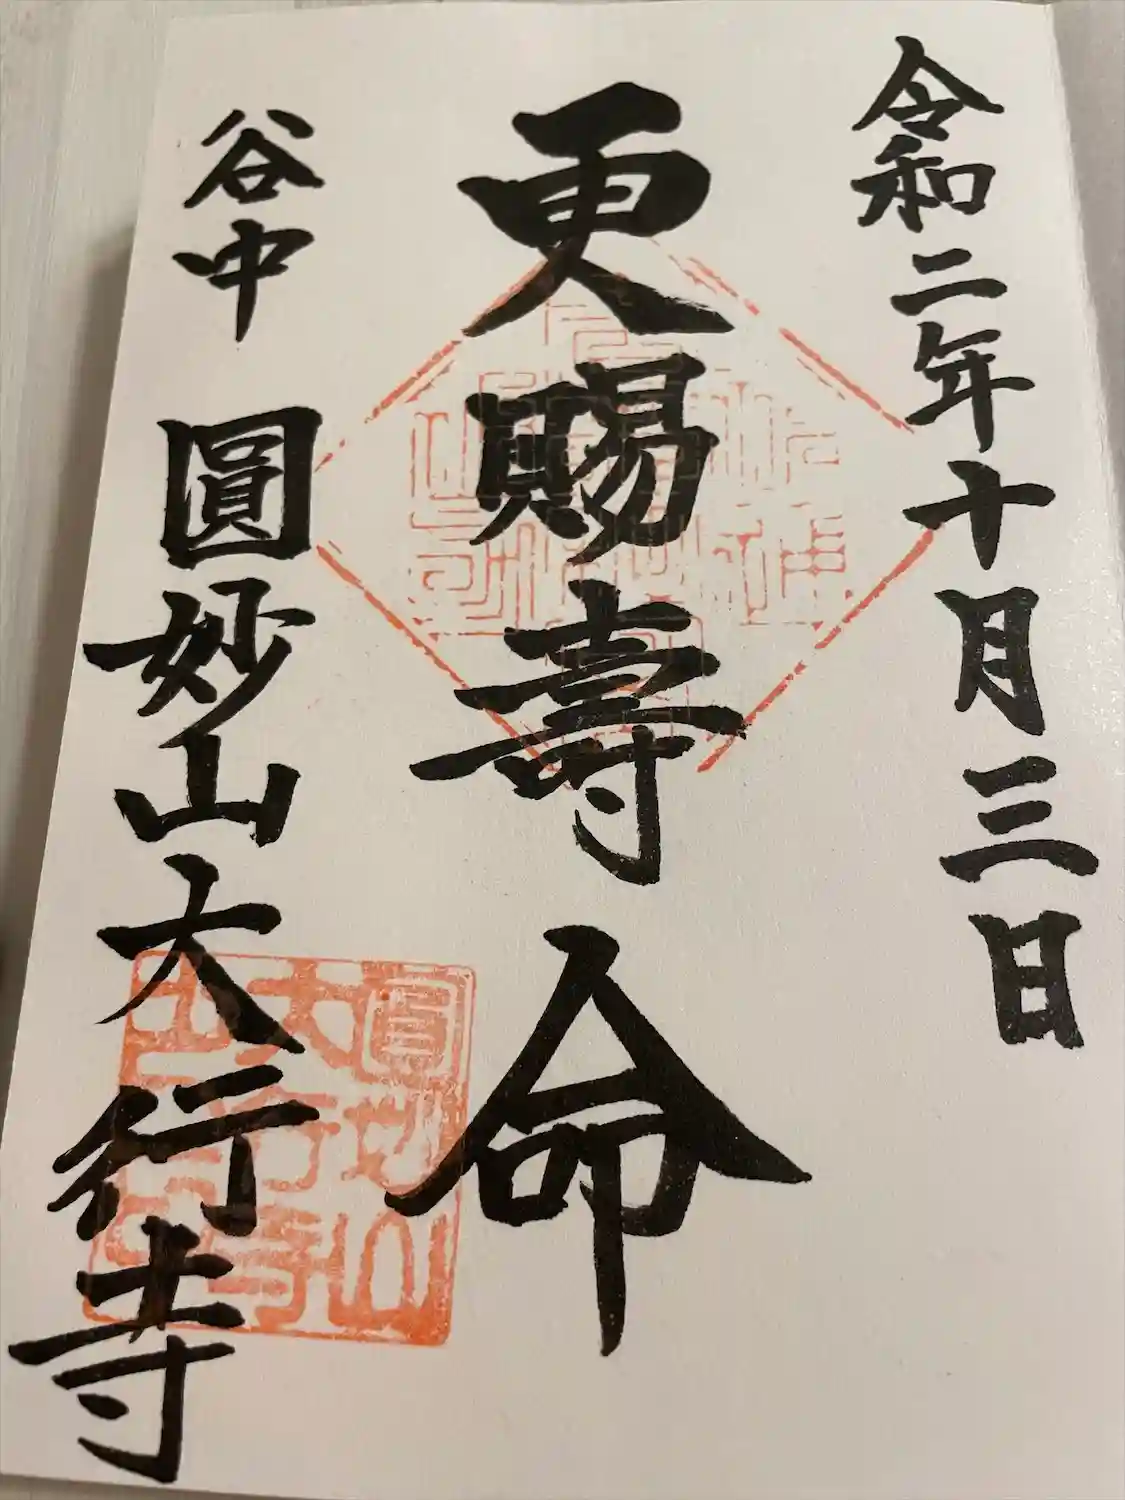 令和二年十月三日
更賜壽命
谷中 圓妙山大行寺
圓妙山
大行寺